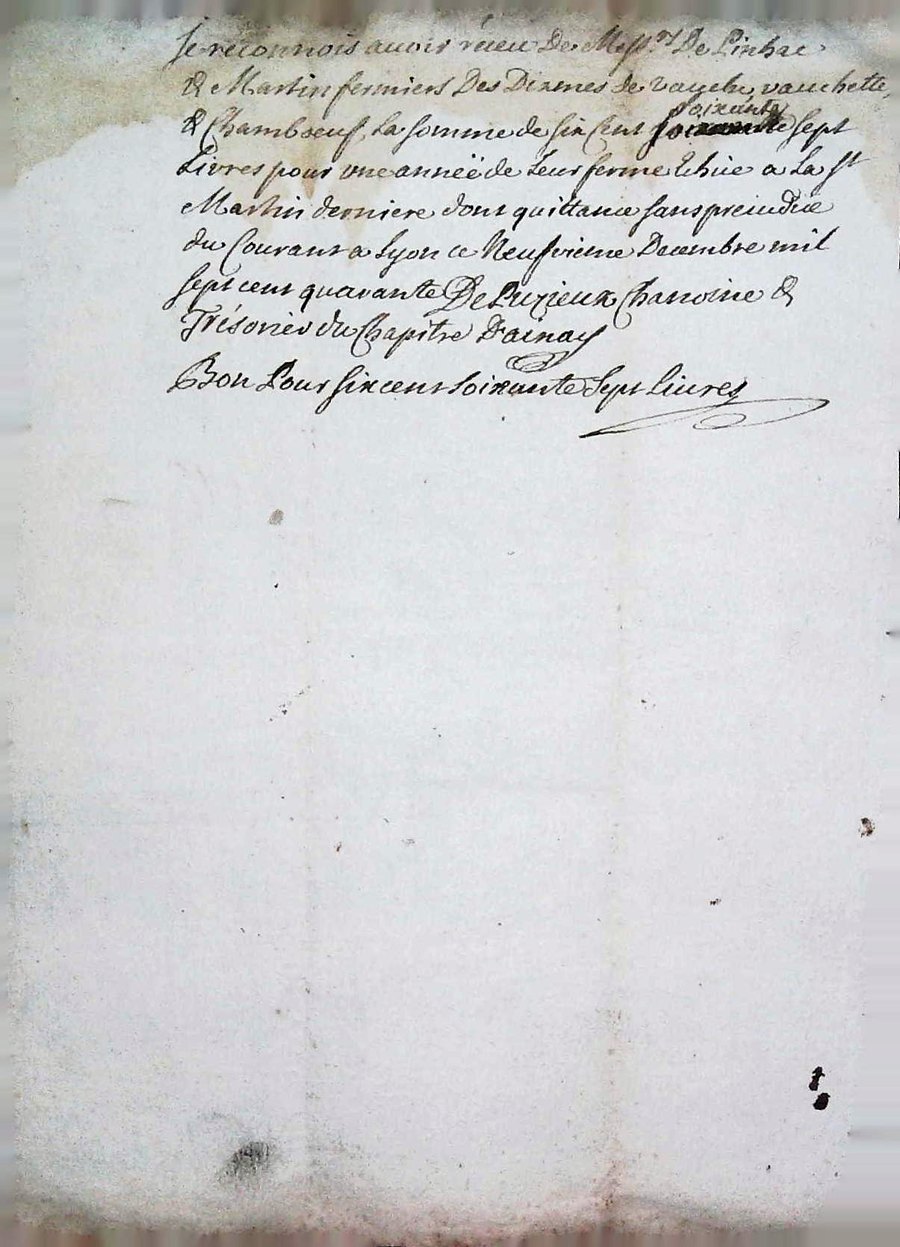 Je reconnois avoir réceu De Mess.rs De Linhac
& Martin fermiers Des Dixmes de vauche, vauchette,
& Chambœuf, La somme de six Cent soixante sept
Livres pour une annéë de Leur ferme Echüe a La St
Martin derniere dont quittance sans preiudice
du Courant a Lyon ce Neufvieme Decembre mil
sept cent quarante De Luzieux Chanoine &
Trésorier du Chapitre D'ainay
Bon Pour six cent soixante Sept Livres